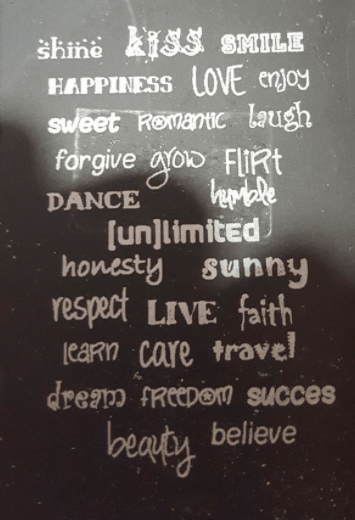 shine kiss SMILE
HAPPINESS LOVE enjoy
sweet ROMANTIC laugh
forgive grow FLiRt
DANCE humble
[un]limited
honesty sunny
respect LIVE faith
leaRn care travel
dream fREEDOM succes
beauty believe